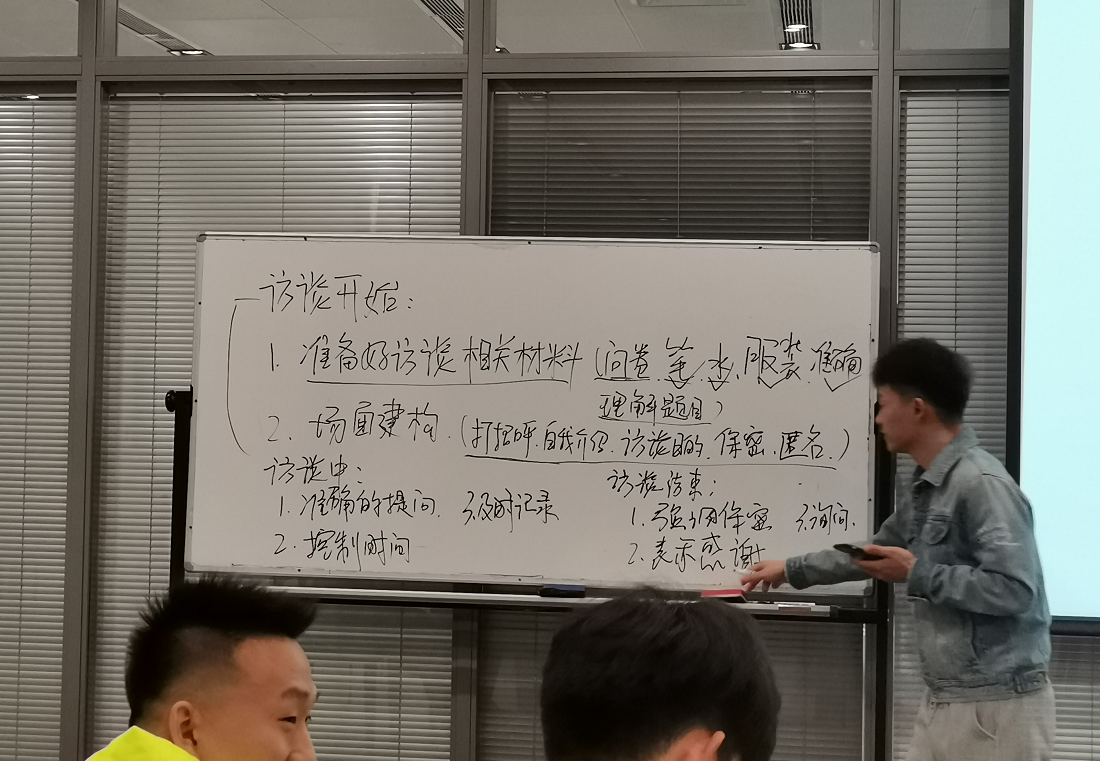 访谈开始:
1. 准备好访谈相关材料(问卷、笔、水、服装、准确
理解题目)
2. 场面建构.(打招呼、自我介绍、访谈目的、保密、匿名.)
访谈中:
1. 准确的提问. 3.及时记录
2. 控制时间
访谈结束:
1. 强调保密 3.询问.
2. 表示感谢